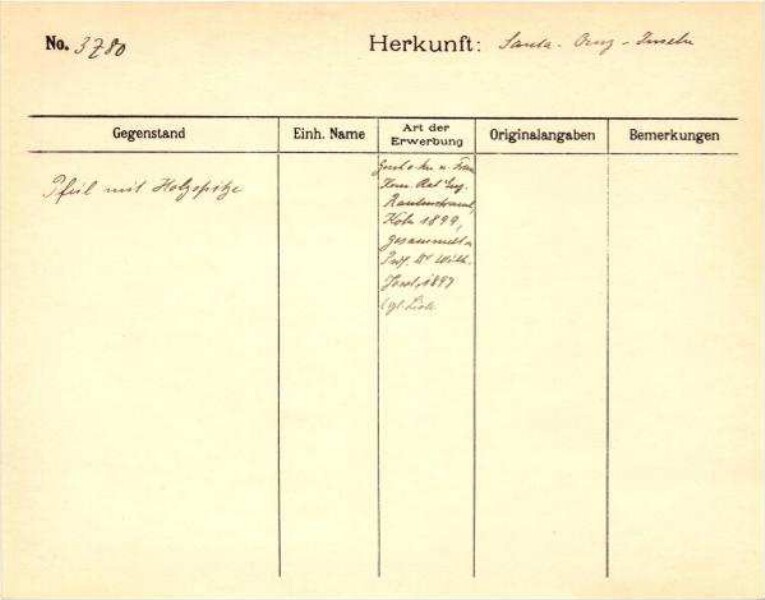 No. 3780
Herkunft: Santa-Cruz-Inseln
Gegenstand
Einh. Name
Art der Erwerbung
Originalangaben
Bemerkungen
Pfeil mit Holzspitze
Gesch. v. Hr. u. Frau
Kom. Rat Eug.
Rautenstrauch,
Köln 1899,
gesammelt v.
Prof. Dr Wilh.
Joest, 1897